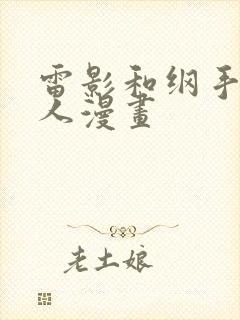 雷影和纲手
人漫畫
老土娘